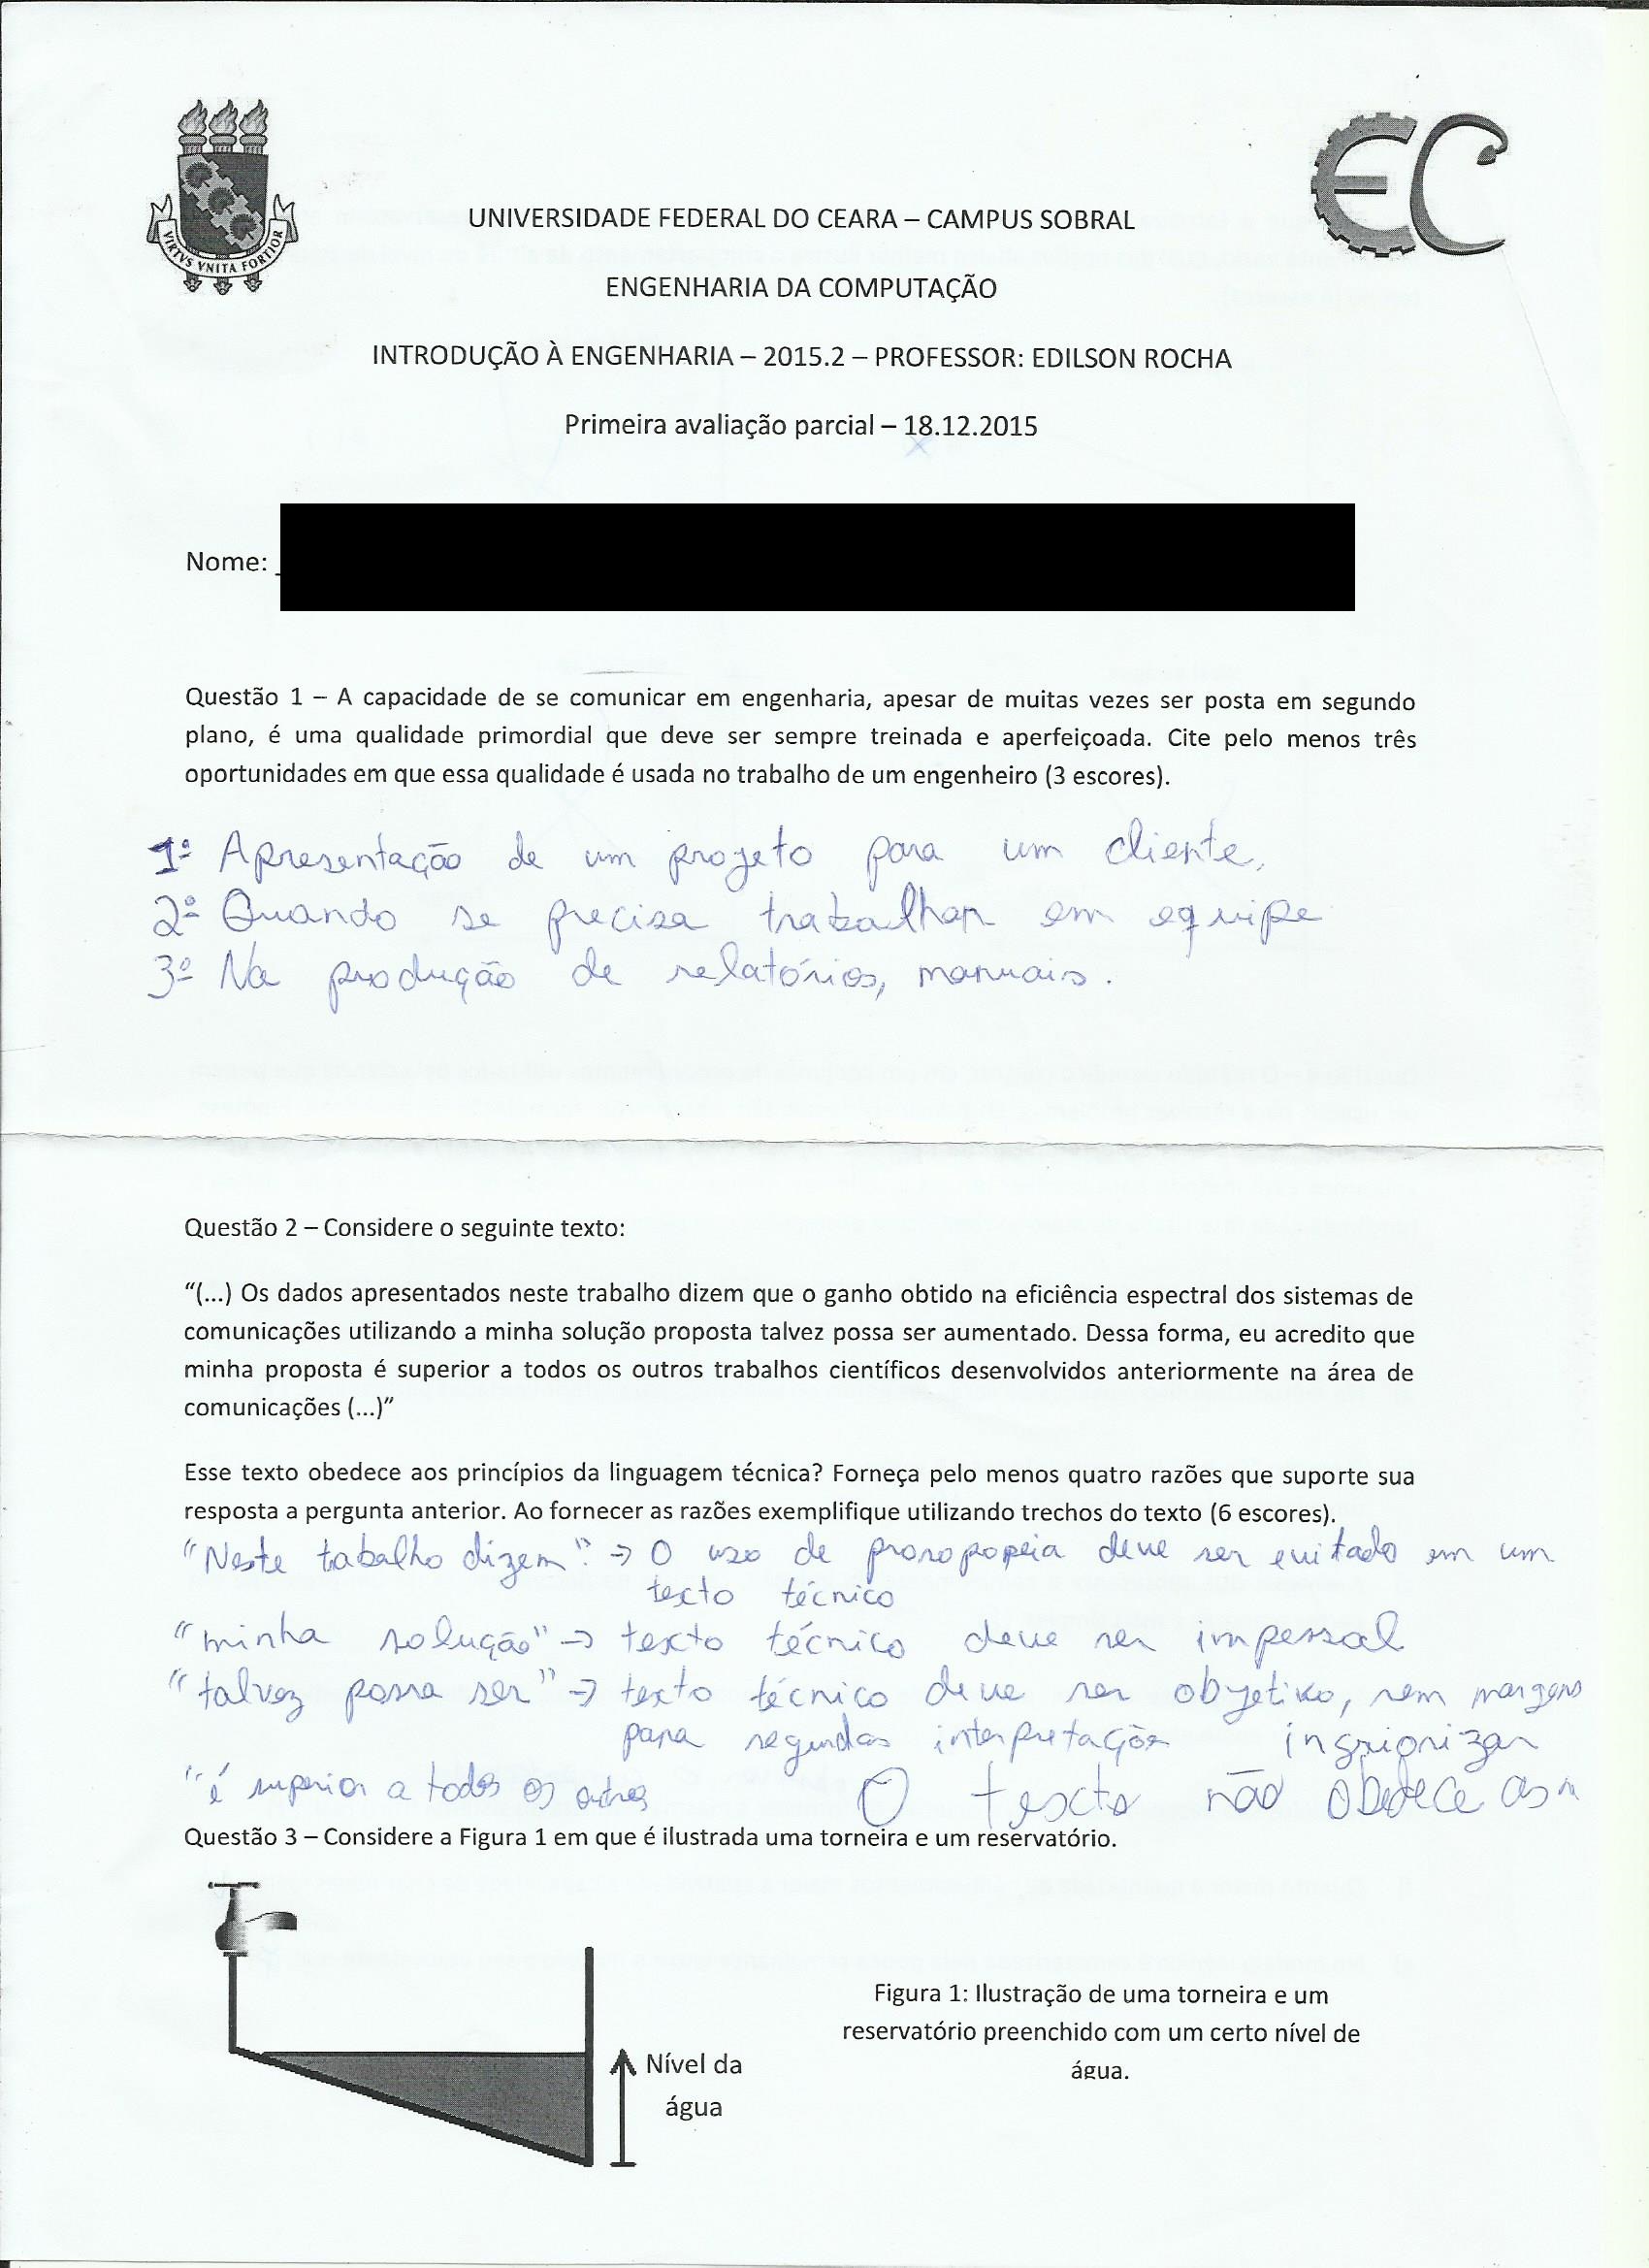 VIRTVS VNITA FORTIOR
EC
UNIVERSIDADE FEDERAL DO CEARA – CAMPUS SOBRAL
ENGENHARIA DA COMPUTAÇÃO
INTRODUÇÃO À ENGENHARIA – 2015.2 – PROFESSOR: EDILSON ROCHA
Primeira avaliação parcial – 18.12.2015
Nome:
Questão 1 – A capacidade de se comunicar em engenharia, apesar de muitas vezes ser posta em segundo
plano, é uma qualidade primordial que deve ser sempre treinada e aperfeiçoada. Cite pelo menos três
oportunidades em que essa qualidade é usada no trabalho de um engenheiro (3 escores).
1º Apresentação de um projeto para um cliente,
2º Quando se precisa trabalhar em equipe
3º Na produção de relatórios, manuais.
Questão 2 – Considere o seguinte texto:
“(...) Os dados apresentados neste trabalho dizem que o ganho obtido na eficiência espectral dos sistemas de
comunicações utilizando a minha solução proposta talvez possa ser aumentado. Dessa forma, eu acredito que
minha proposta é superior a todos os outros trabalhos científicos desenvolvidos anteriormente na área de
comunicações (...)”
Esse texto obedece aos princípios da linguagem técnica? Forneça pelo menos quatro razões que suporte sua
resposta a pergunta anterior. Ao fornecer as razões exemplifique utilizando trechos do texto (6 escores).
"Neste tabalho dizem". → O uso de prosopopeia deve ser evitado em um
texto técnico
"minha solução" → texto técnico deve ser impessoal
"talvez possa ser" → texto técnico deve ser objetivo, sem margens
para segundas interpretações
"é superior a todos os outros O texto não obedece
Questão 3 – Considere a Figura 1 em que é ilustrada uma torneira e um reservatório.
Figura 1: Ilustração de uma torneira e um
reservatório preenchido com um certo nível de
água.
Nível da
água